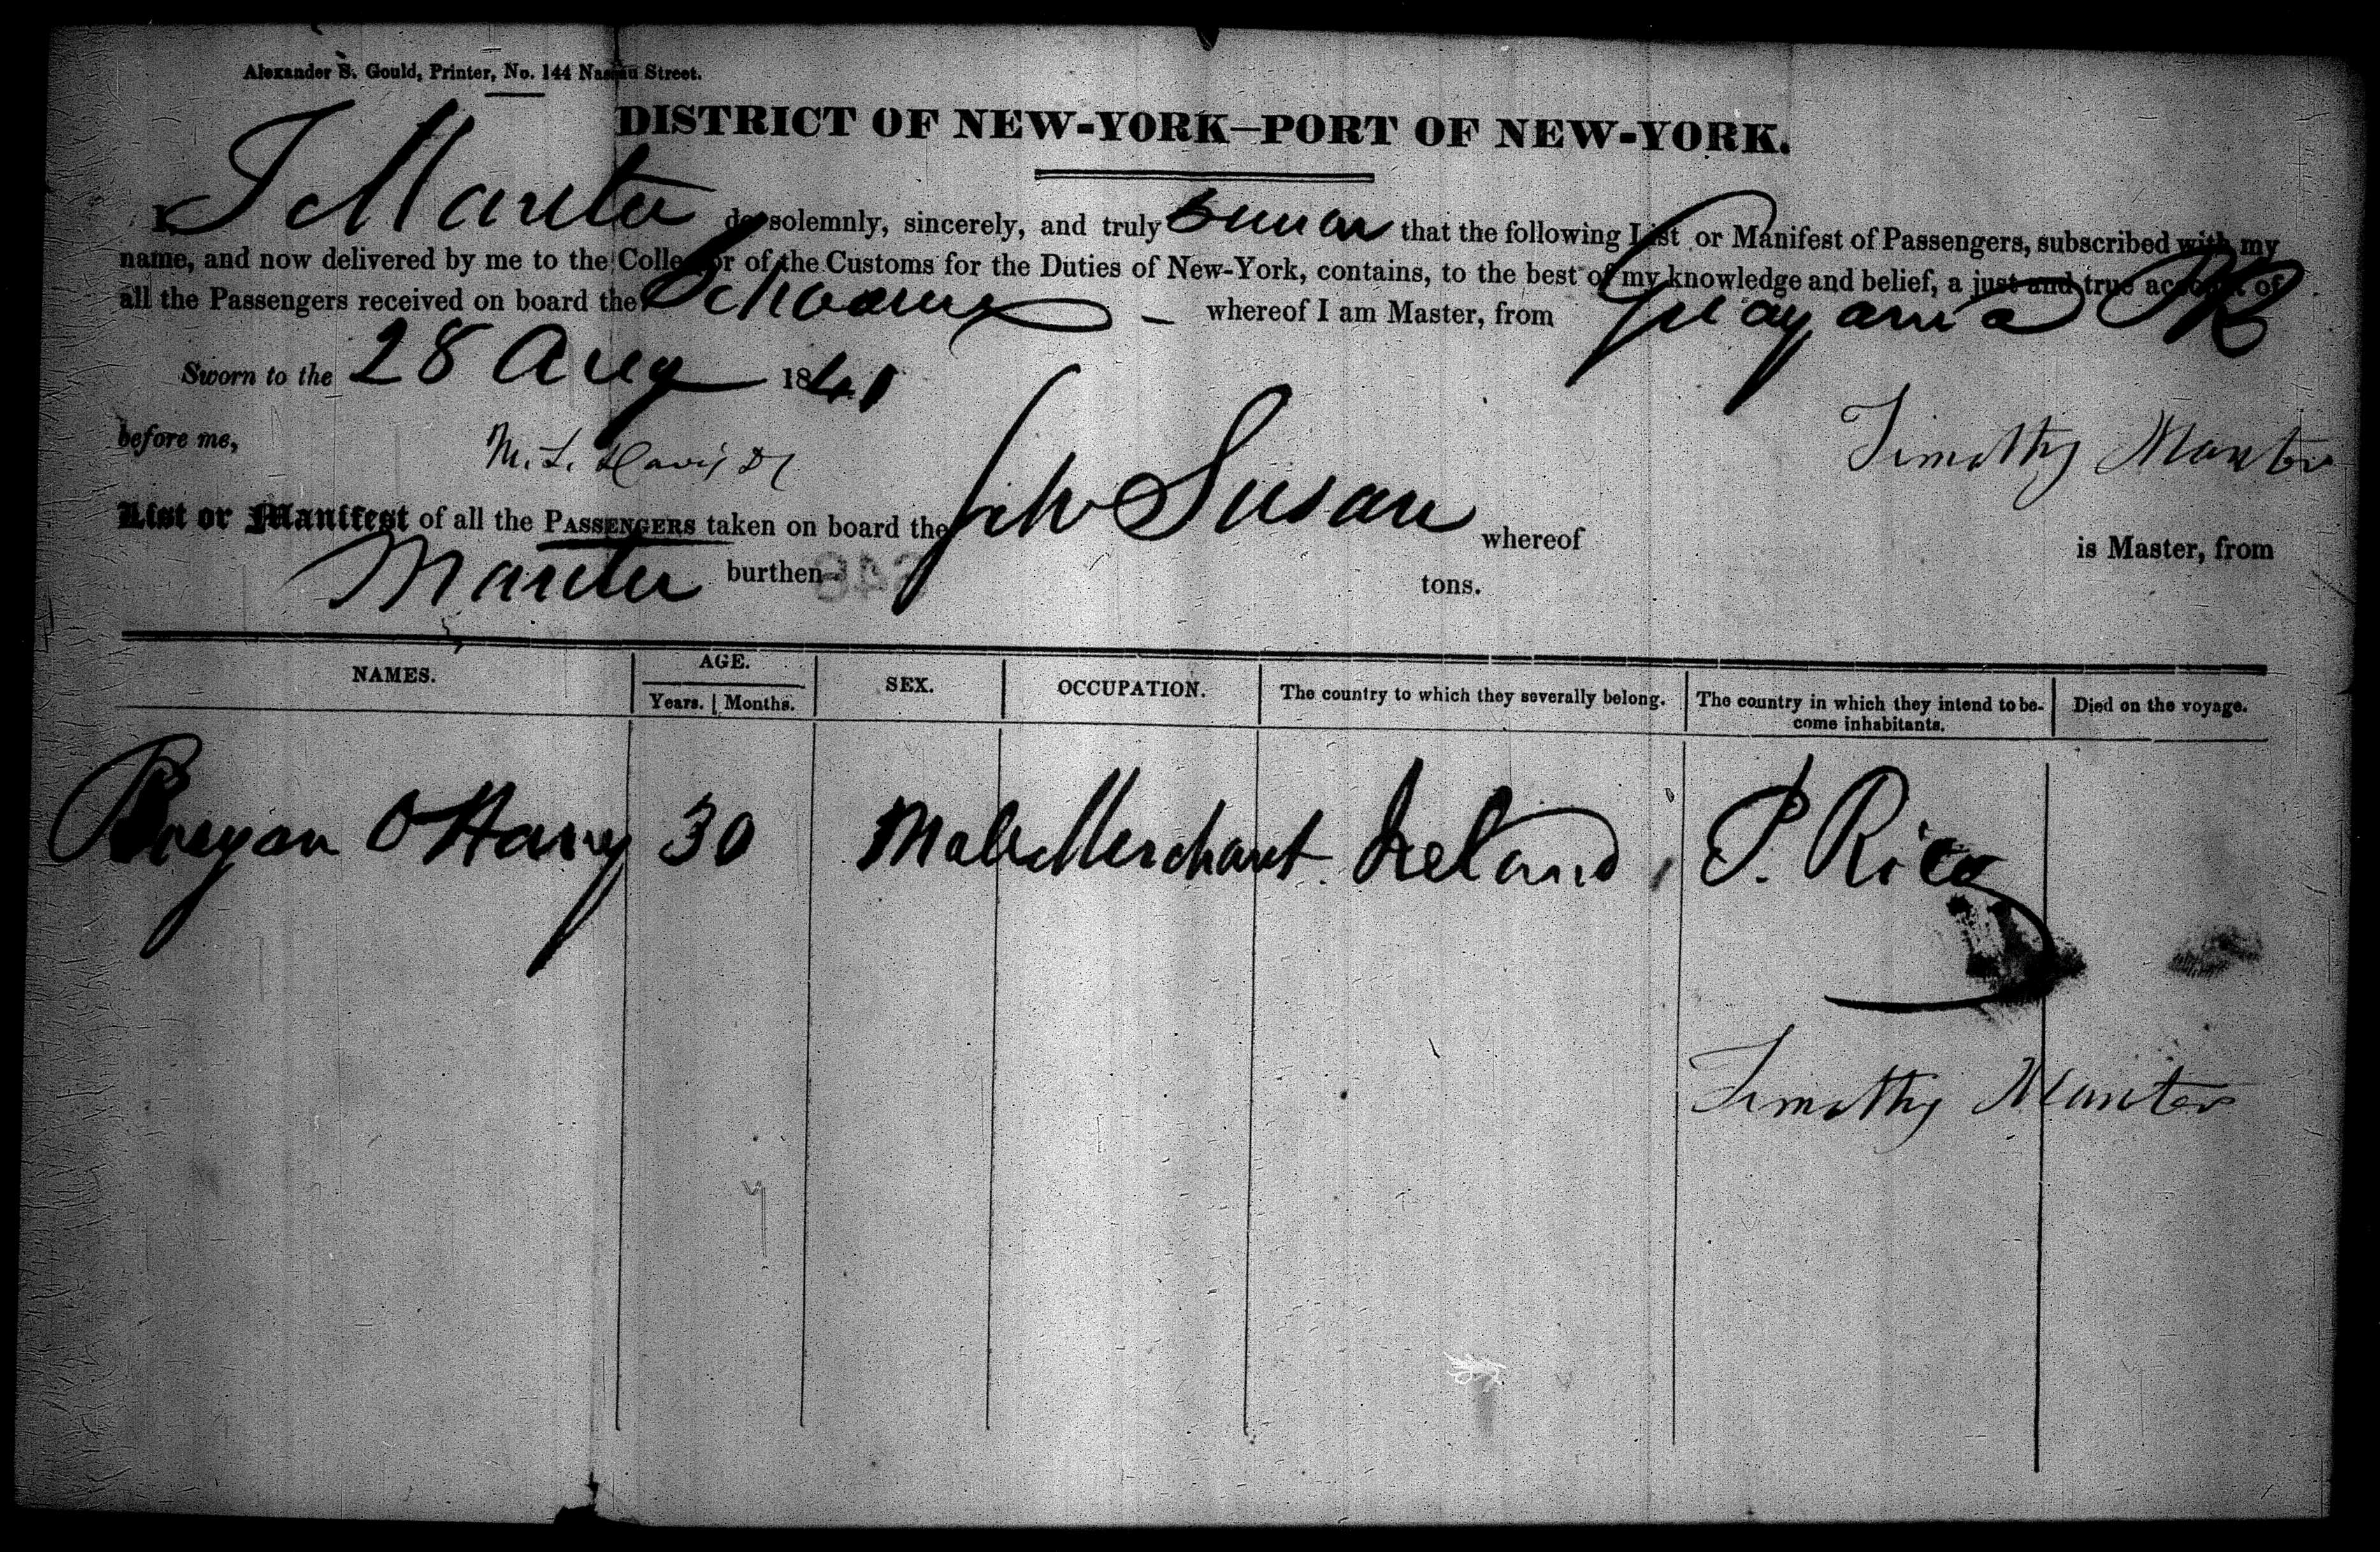 Alexander S. Gould, Printer, No. 144 Nassau Street.
DISTRICT OF NEW-YORK—PORT OF NEW-YORK.
I, T Manter do solemnly, sincerely, and truly Swear that the following List or Manifest of Passengers, subscribed with my
name, and now delivered by me to the Collector of the Customs for the Duties of New-York, contains, to the best of my knowledge and belief, a just and true account of
all the Passengers received on board the Schooner whereof I am Master, from Guayama PR
Sworn to the 28 Aug 1841
before me, M. L. Davis
Timothy Manter
List or Manifest of all the PASSENGERS taken on board the Schr Susan whereof
Manter is Master, from
burthen tons.
NAMES. AGE. Years. Months. SEX. OCCUPATION. The country to which they severally belong. The country in which they intend to become inhabitants. Died on the voyage.
30 Male Merchant. Ireland, P. Rico
Timothy Manter